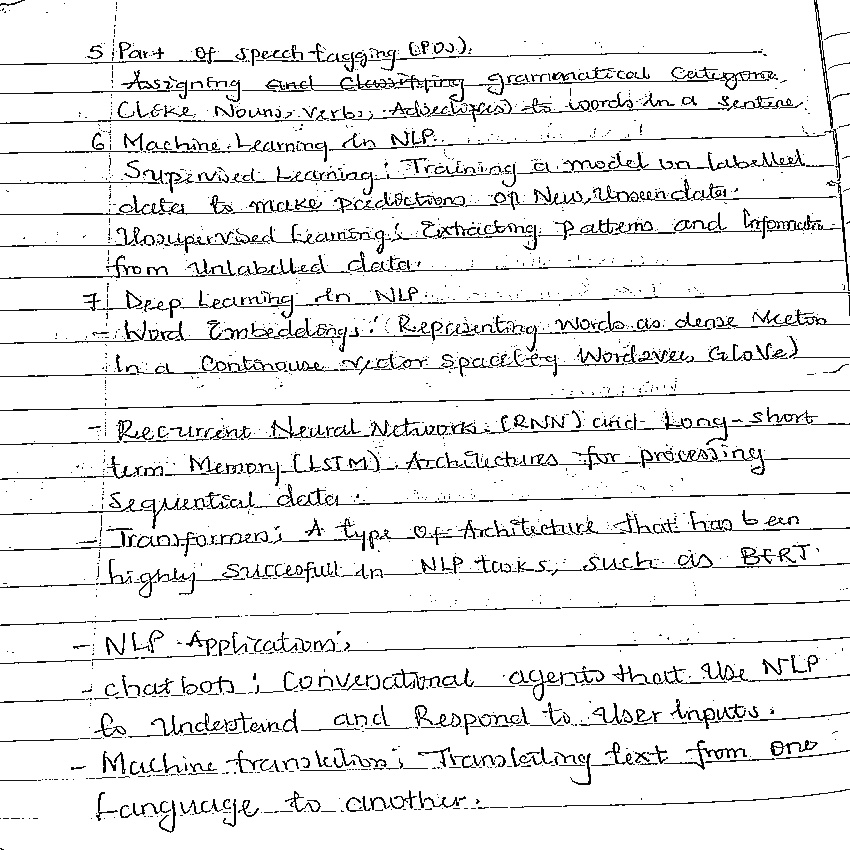 5 Part of speech tagging (POS).
Assigning and Classifying grammatical Categorie
(Like Nouns, Verbs, Adjectives) to words in a sentence
6 Machine Learning in NLP.
Supervised Learning: Training a model on labelled
data to make predictions on New, Unseen data.
Unsupervised Learning: Extracting patterns and Information
from Unlabelled data.
7 Deep Learning in NLP.
- Word Embeddings: (Representing words as dense Vector
in a Continouse vector space (eg GloVe)
- Recurrent Neural Networks (RNN) and Long-short
term Memory (LSTM) Architectures for processing
Sequential data.
- Transformers; A type of Architecture that has been
highly succesfull in NLP tasks, such as BERT.
- NLP Applications;
- chatbots; Conversational agents that Use NLP
to Understand and Respond to User inputs.
- Machine translation; Translating text from one
Language to another.